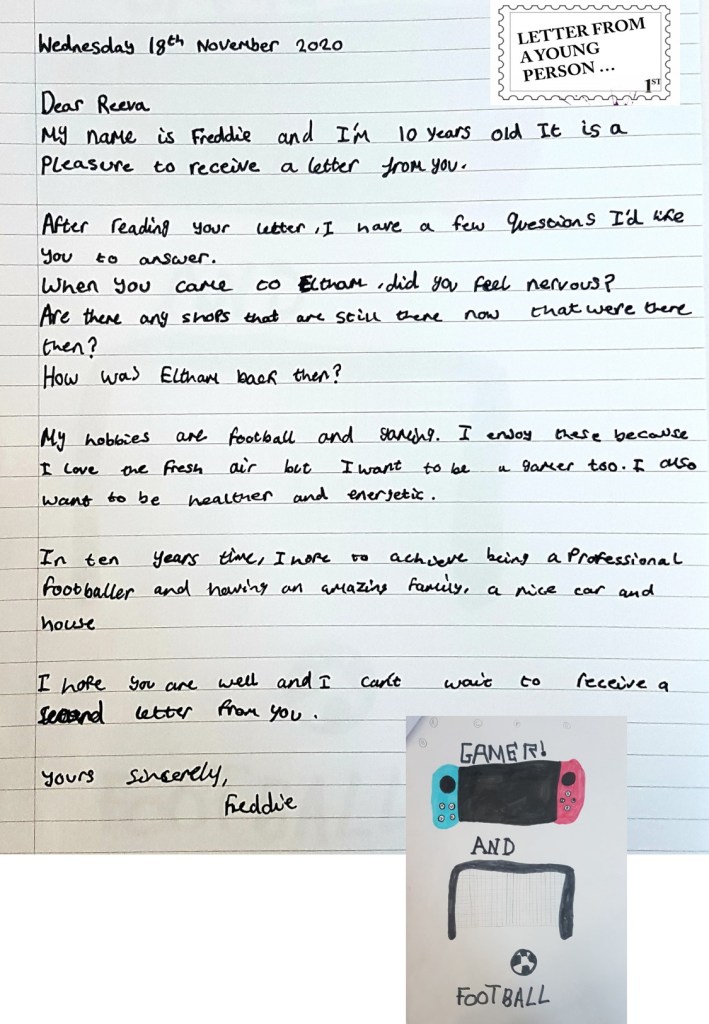 Wednesday 18th November 2020
LETTER FROM
A YOUNG
PERSON ...
1ST
Dear Reeva
My name is Freddie and I'm 10 years old It is a
Pleasure to receive a letter from you.
After reading your letter, I have a few Questions I'd like
you to answer.
When you came to Eltham, did you feel nervous?
Are there any shops that are still there now that were there
then?
How was Eltham back then?
My hobbies are football and gaming. I enjoy these because
I love the fresh air but I want to be a gamer too. I also
want to be healther and energetic.
In ten years time, I hope to achieve being a Professional
footballer and having an amazing family, a nice car and
house
I hope you are well and I can't wait to receive a
second letter from you.
yours sincerely,
Freddie
GAMER!
AND
FOOTBALL